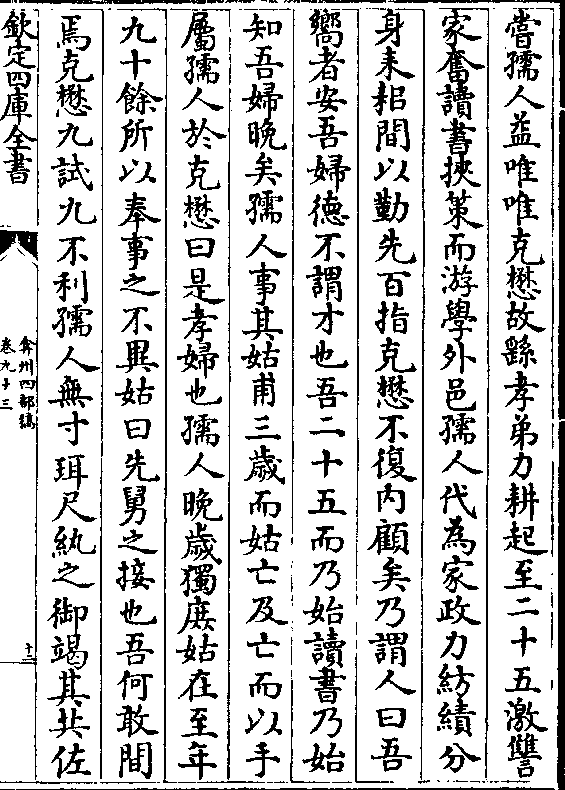 嘗孺人益唯唯克懋故繇孝弟力耕起至二十五激讐
家奮讀書挾策而游學外邑孺人代為家政力紡績分
身耒耜間以勤先百指克懋不復内顧矣乃謂人曰吾
嚮者安吾婦德不謂才也吾二十五而乃始讀書乃始
知吾婦晚矣孺人事其姑甫三歳而姑亡及亡而以手
屬孺人於克懋曰是孝婦也孺人晩歳獨庻姑在至年
九十餘所以奉事之不異姑曰先舅之接也吾何敢間
焉克懋九試九不利孺人無寸珥尺紈之御竭其共佐
欽定四庫全書
弇州四部稿
卷九十三
十三